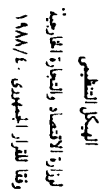 الهيكل التنظيمى
لوزارة الاقتصاد والتجارة الخارجية
وفقا للقرار الجمهورى ٤٠ / ١٩٨٨